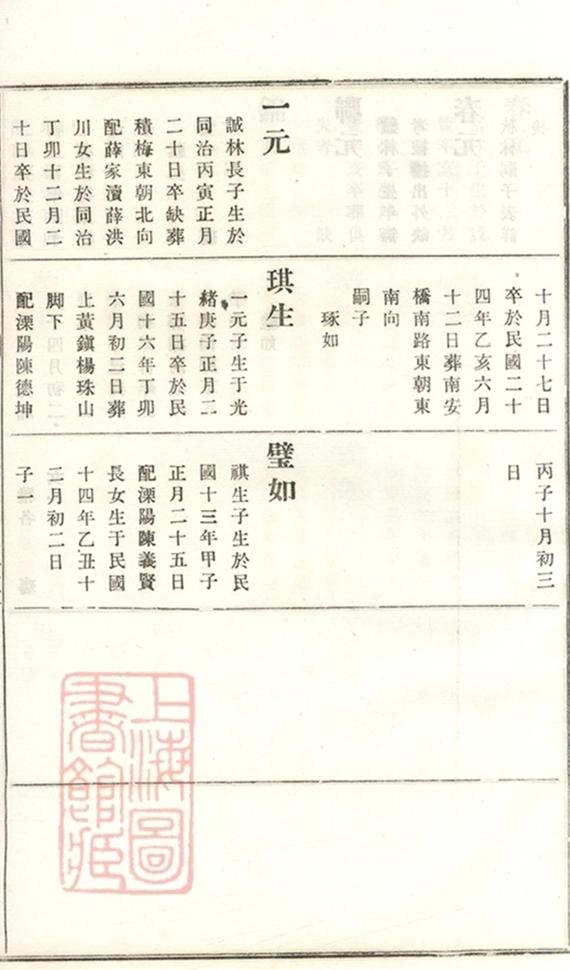 一元
誠林長子生於
同治丙寅正月
二十日卒缺葬
積梅東朝北向
配薛家瀆薛洪
川女生於同治
丁卯十二月二
十日卒於民國
十月二十七日
卒於民國二十
四年乙亥六月
十二日葬南安
橋南路東朝東
南向
嗣子
琢如
琪生
一元子生于光
緒庚子正月二
十五日卒於民
國十六年丁卯
六月初二日葬
上黃鎮楊珠山
脚下
配溧陽陳德坤
丙子十月初三
日
璧如
祺生子生於民
國十三年甲子
正月二十五日
配溧陽陳義賢
長女生于民國
十四年乙丑十
二月初二日
子一
上海圖
書館藏